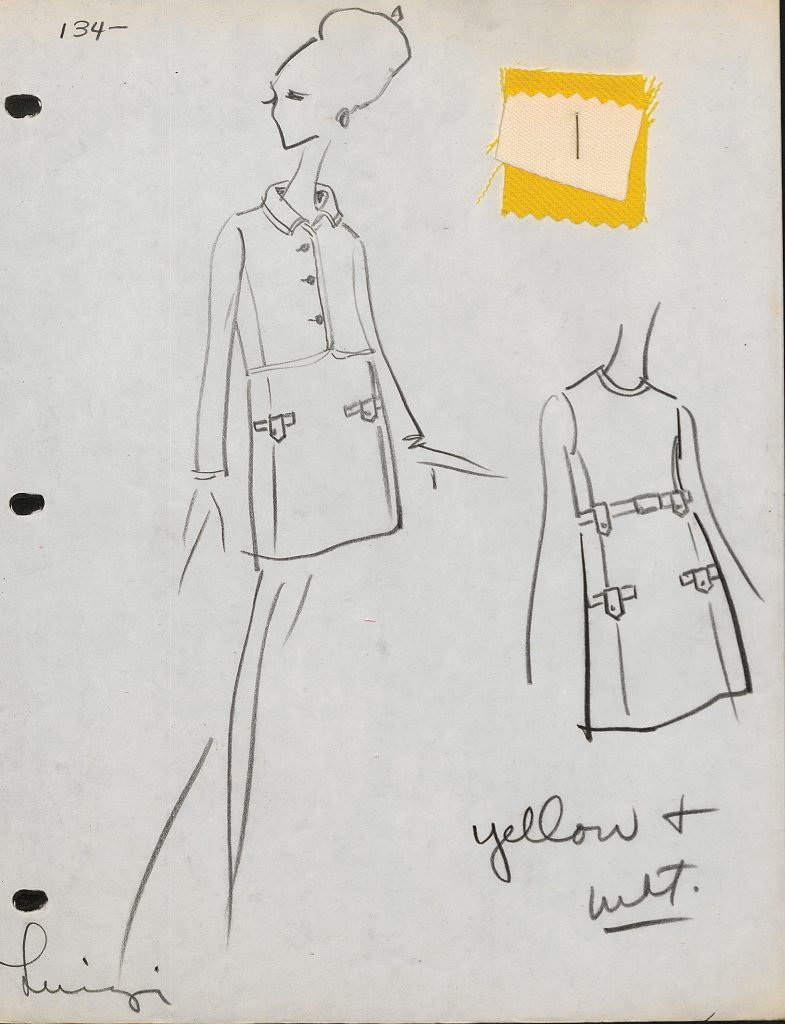 134-
yellow +
wht.
Luigi